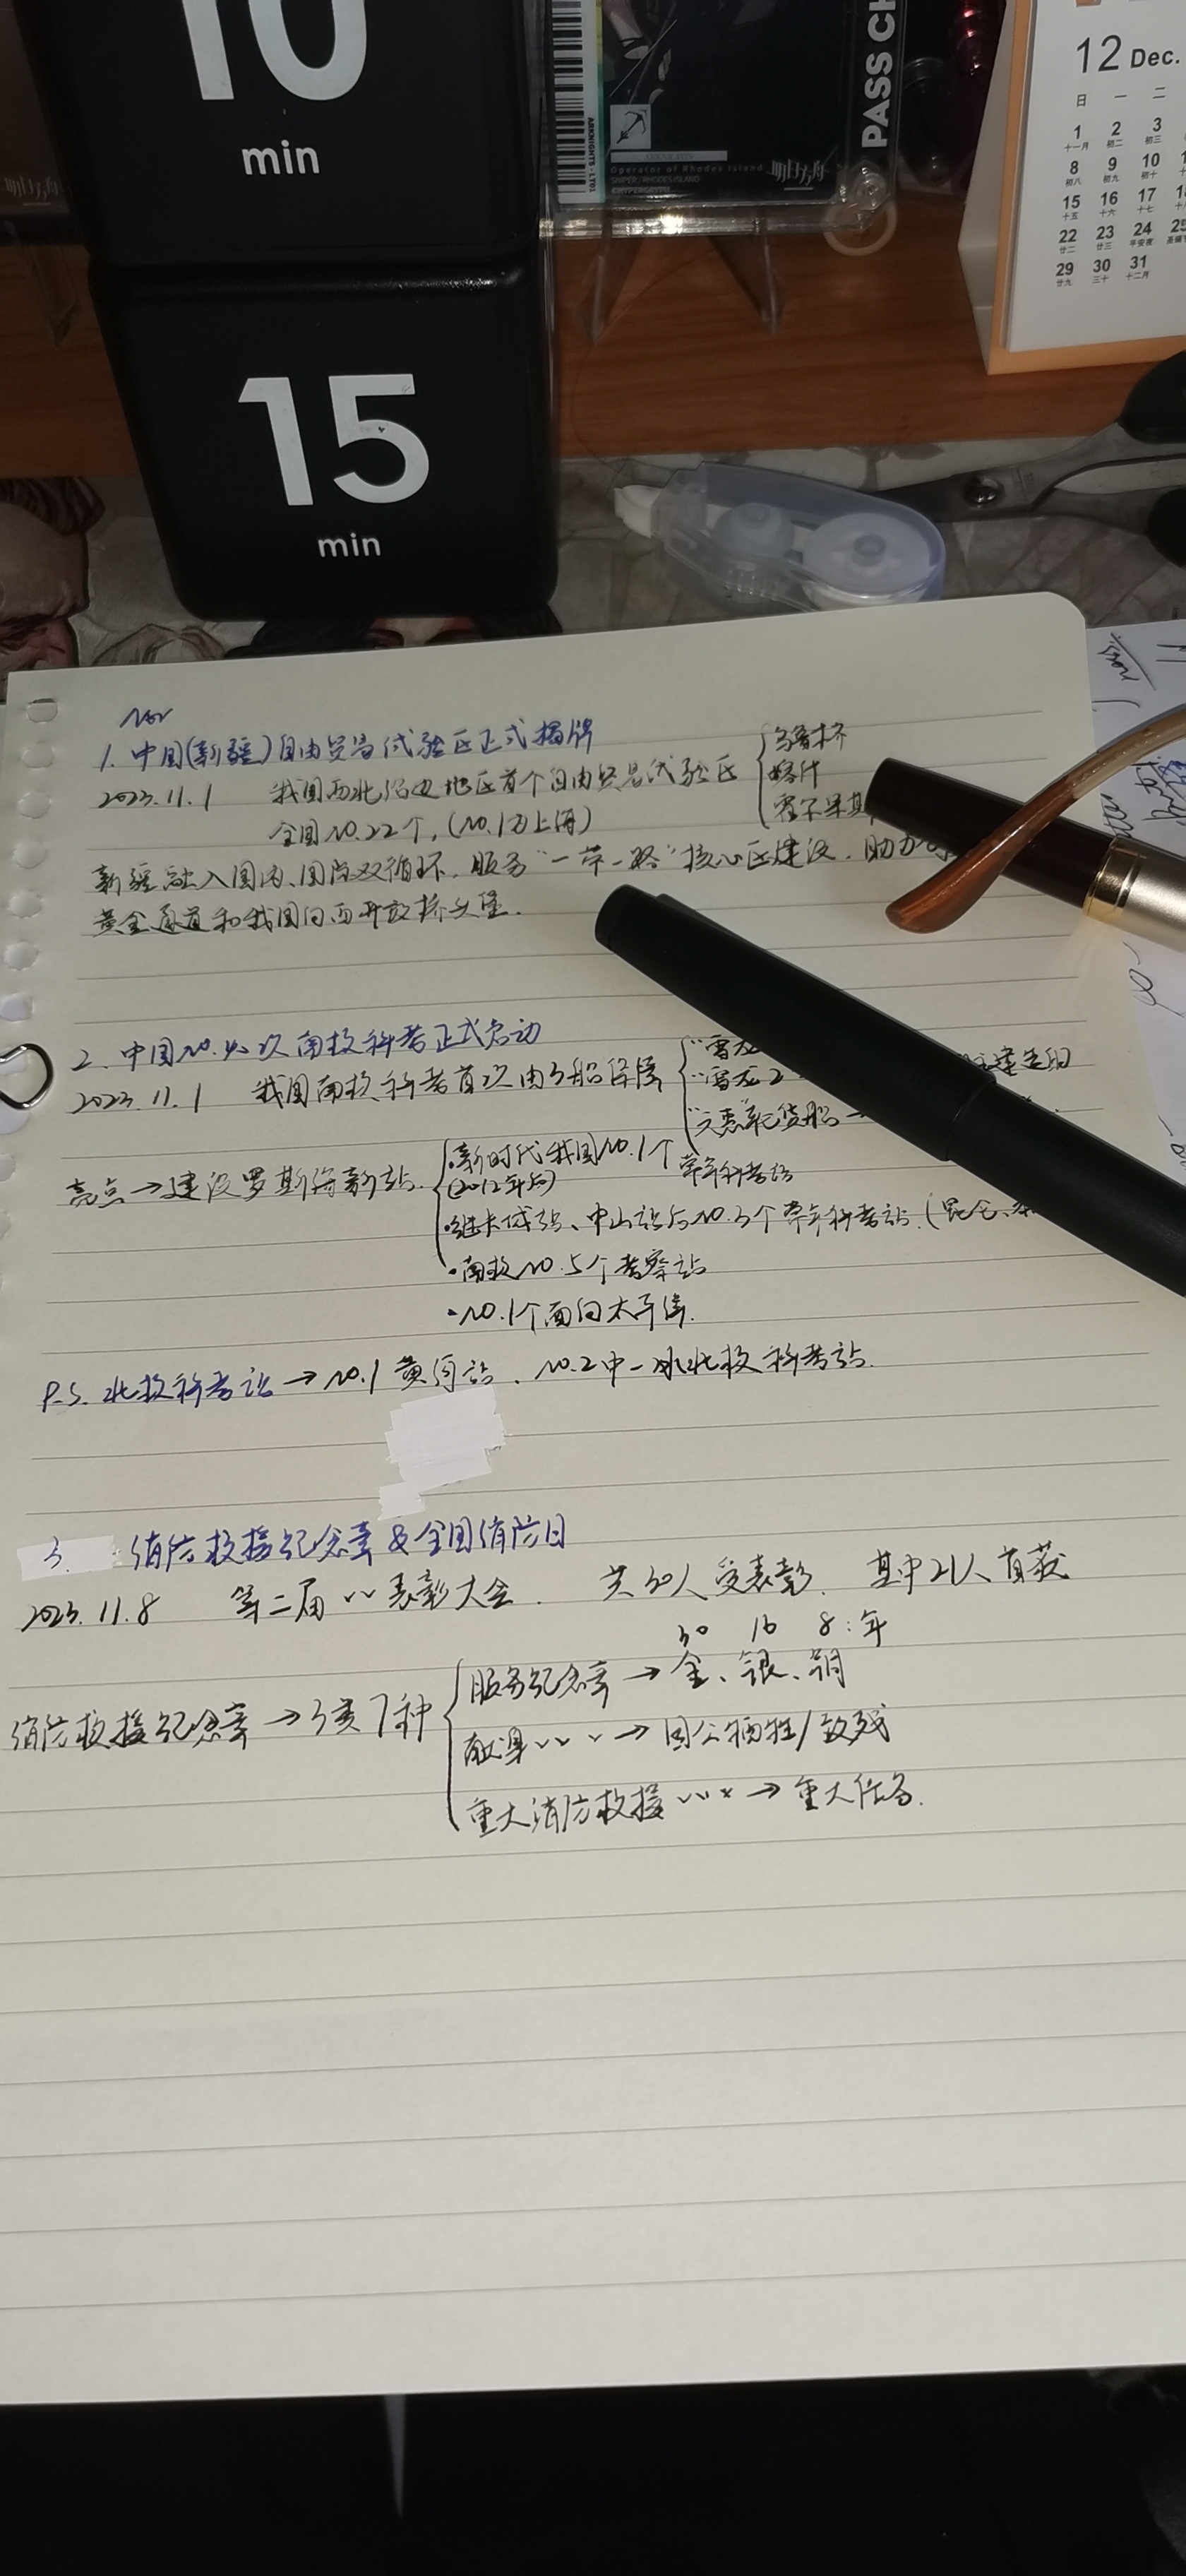 10
min
15
min
ARKNIGHTS
Operator of Rhodes Island
SNIPER/RHODES ISLAND
©HYPERGRYPH
明日方舟
PASS CH
12 Dec.
日 一 二
1 2 3
十一月 初二 初三
8 9 10
初八 初九 初十
15 16 17
十五 十六 十七
22 23 24 25
廿二 廿三 平安夜
29 30 31
廿九 三十 十二月
Nov
1. 中国(新疆)自由贸易试验区正式揭牌
2023.11.1 我国西北沿边地区首个自由贸易试验区 乌鲁木齐
喀什
霍尔果斯
全国NO.22个,(NO.1为上海)
新疆融入国内、国际双循环,服务“一带一路”核心区建设,助力
黄金通道和我国向西开放桥头堡.
2. 中国NO.40次南极科考正式启动
2023.11.1 我国南极科考首次由3船保障 “雪龙
“雪龙2 建造的
“天惠”轮货船→
亮点→建设罗斯海新站
·新时代我国NO.1个常年科考站
(2012年后)
·继长城站、中山站后NO.3个常年科考站.(昆仑、
·南极NO.5个考察站
·NO.1个面向太平洋.
P.S. 北极科考站→NO.1黄河站、NO.2中-冰北极科考站.
3. 消防救援纪念章&全国消防日
2023.11.8 第二届〃表彰大会. 共30人受表彰. 其中21人首获
30 16 8:年
消防救援纪念章→3类7种
服务纪念章→金、银、铜
献身〃〃→因公牺牲/致残
重大消防救援〃〃→重大任务.